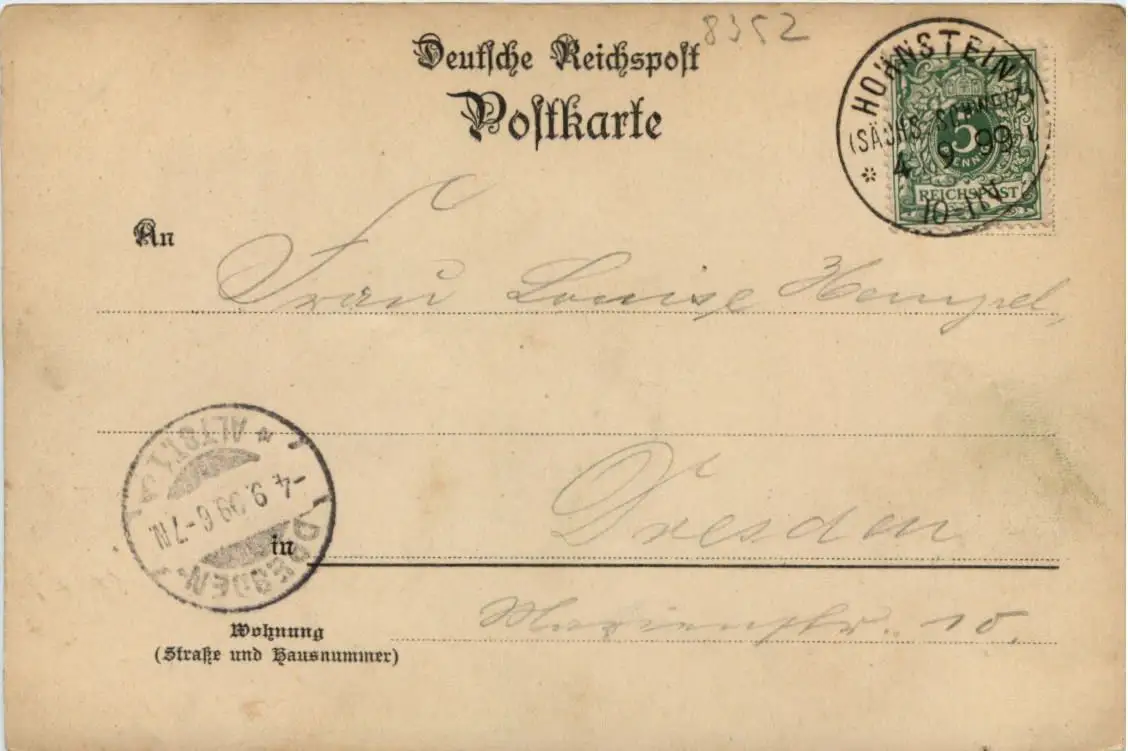 8352
Deutsche Reichspost
Postkarte
HOHNSTEIN
(SÄCHS. SCHWEIZ)
4 9 99
10-11 V
5
PFENNIG
REICHSPOST
An
Frau Louise Hempel,
DRESDEN-
ALTST.
4. 9. 99 6-7N
in Dresden
Wohnung
(Straße und Hausnummer)
Marienstr. 10.